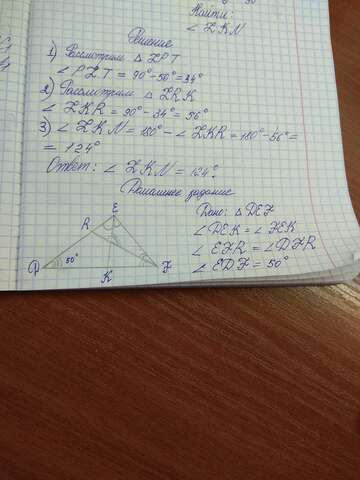 Найти:
∠ZKN
Решение
1) Рассмотрим △ZPT
∠PZT = 90° - 56° = 34°
2) Рассмотрим △ZRK
∠ZKR = 90° - 34° = 56°
3) ∠ZKN = 180° - ∠ZKR = 180° - 56° =
= 124°
Ответ: ∠ZKN = 124°.
Домашнее задание
Дано: △DEF
∠DEK = ∠FEK
∠EFR = ∠DFR
∠EDF = 50°
E
R
D
50°
K
F